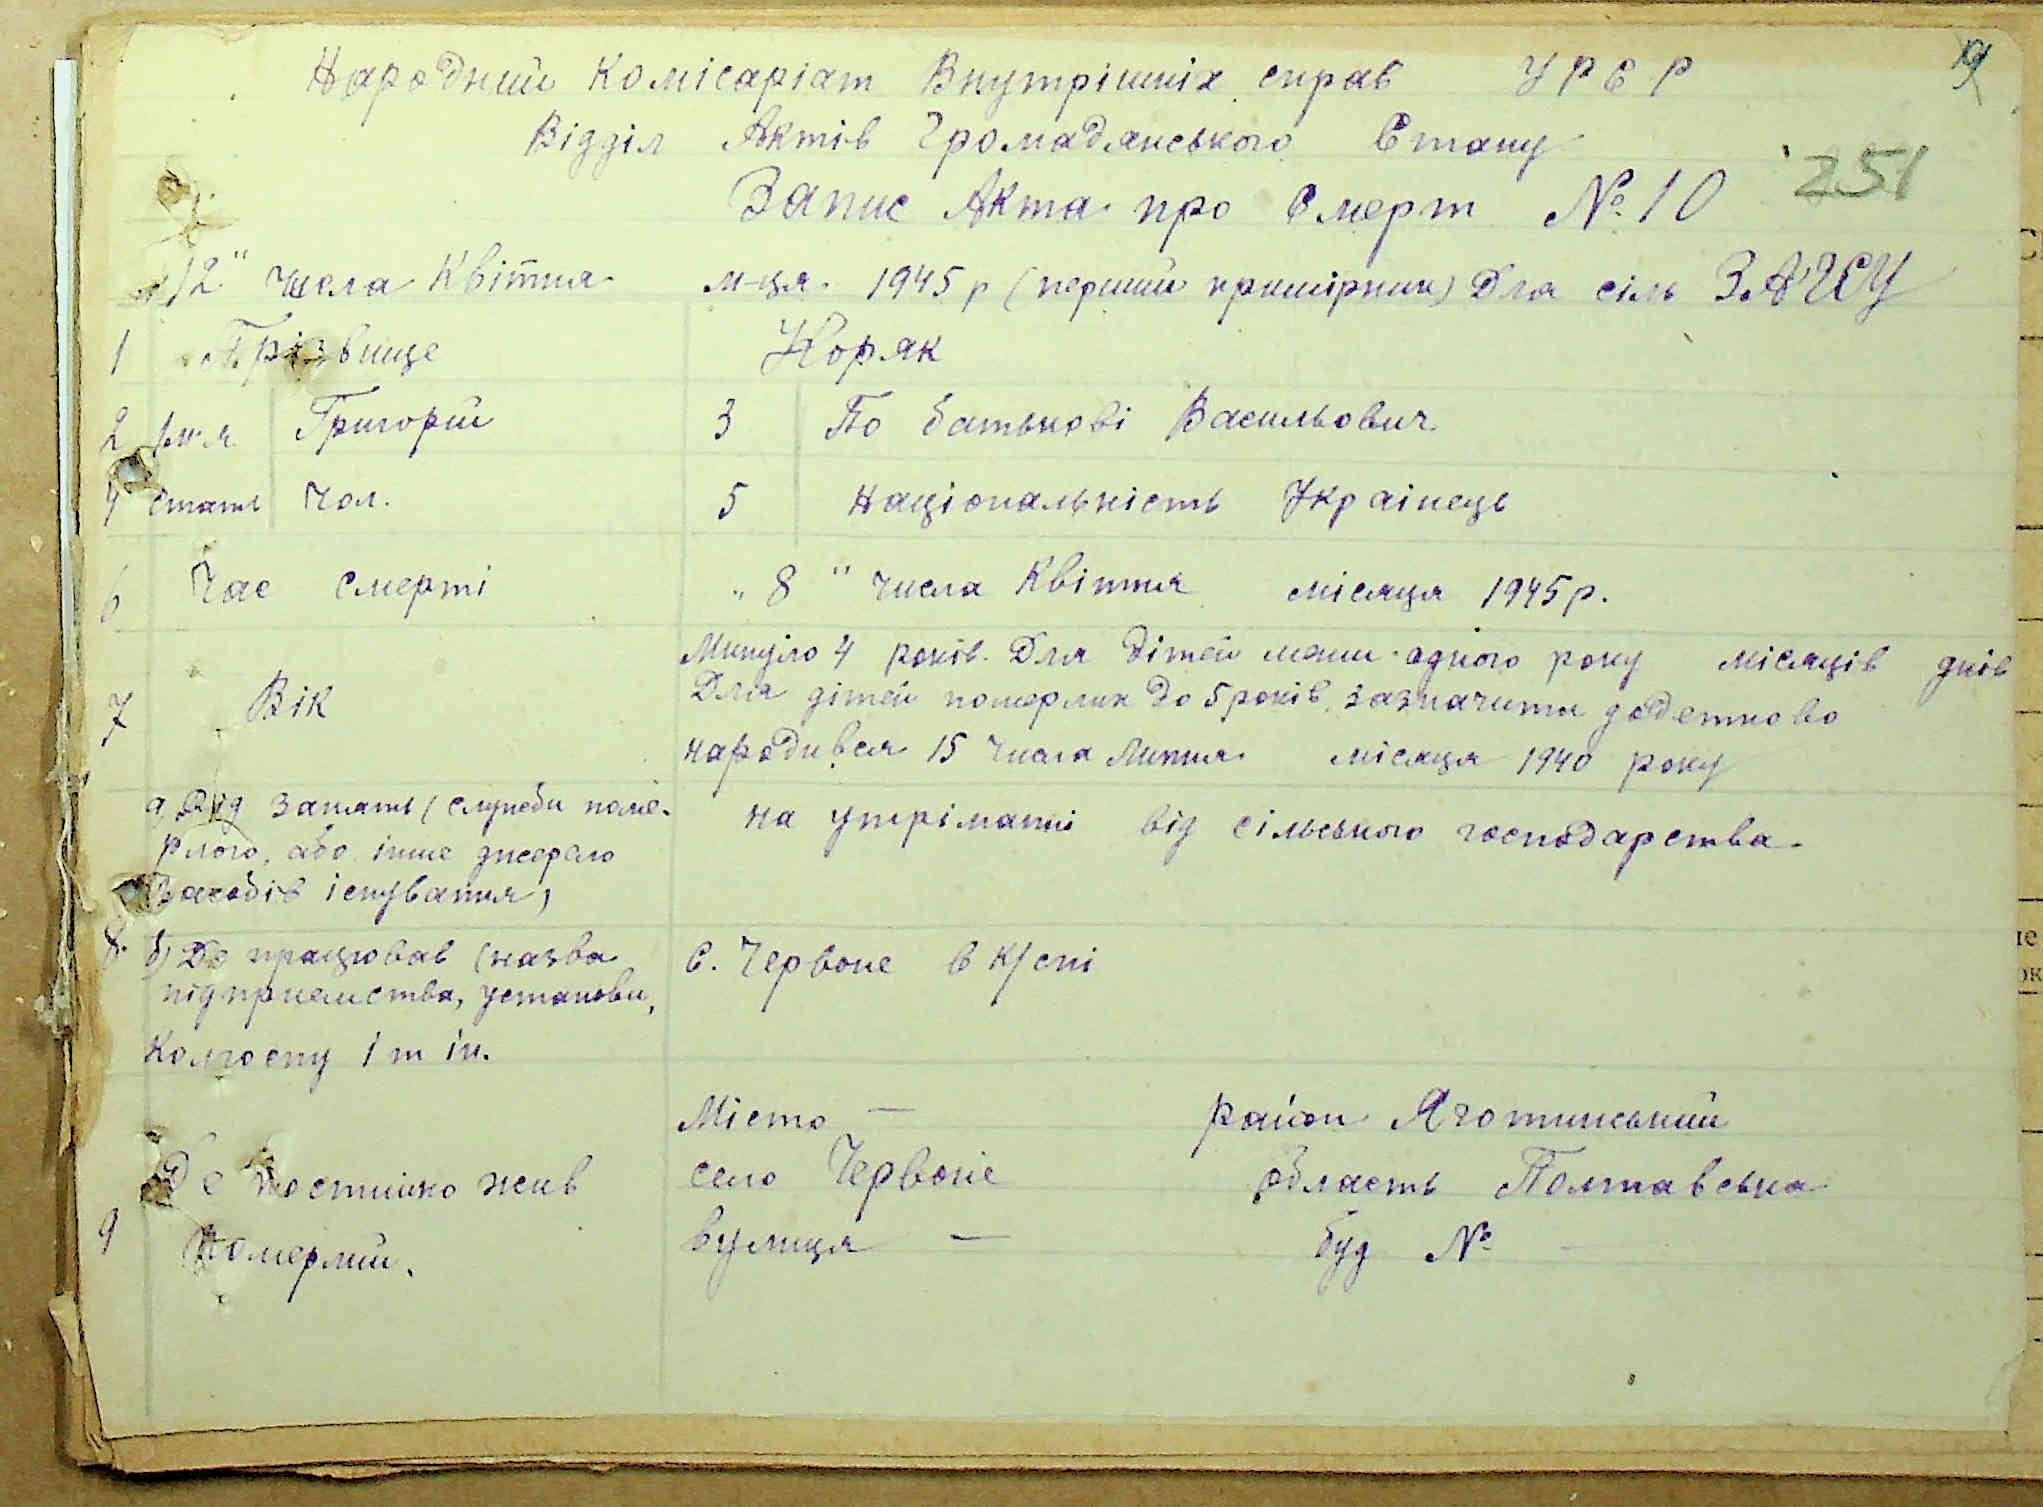 Народний Комісаріат Внутрішніх справ УРСР
Відділ Актів Громадянського Стану
251
Запис Акта про Смерт № 10
"12" числа Квітня м-ця 1945 р (перший примірник) Для сіль ЗАГСУ
1 Прізвище Коряк
2 Імя Григорій 3 По батькові Васильович
4 Стать Чол. 5 Національність Украінець
6 Час смерті "8" числа Квітня місяця 1945 р.
Минуло 4 років. Для дітей менш одного року місяців днів
7 Вік Для дітей померлих до 5 років, зазначити додатково
народився 15 числа Липня місяця 1940 року
а, Від занять (служби поме-
рлого, або інше джерело
засобів існування) на утріманні від сільського господарства
8. б) Де працював (назва С. Червоне в к/спі
підприемства, установи,
Колгоспу і т ін.
Місто — район Яготинський
Де постійно жив село Червоне область Полтавська
9 Померлий. вулиця — буд № —